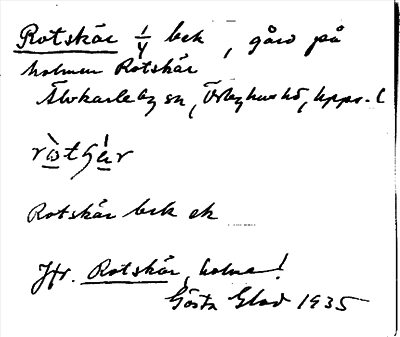 Rotskär 1/4 bek, gård på
holmen Rotskär
Älvkarleby sn, Örbyhus hd, Upps. l
rotʃär
Rotskär bek ek
Jfr. Rotskär, holme!
Gösta Glad 1935